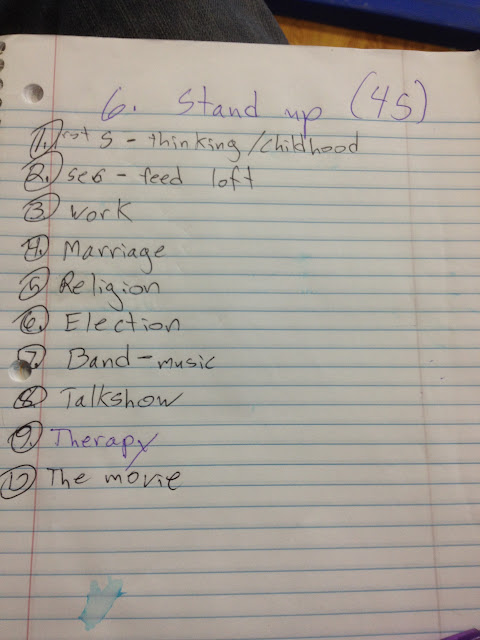 6. Stand up (4S)
1. S - thinking/childhood
2. - feed loft
3. work
4. Marriage
5. Religion
6. Election
7. Band-music
8. Talkshow
9. Therapy
10 The movie